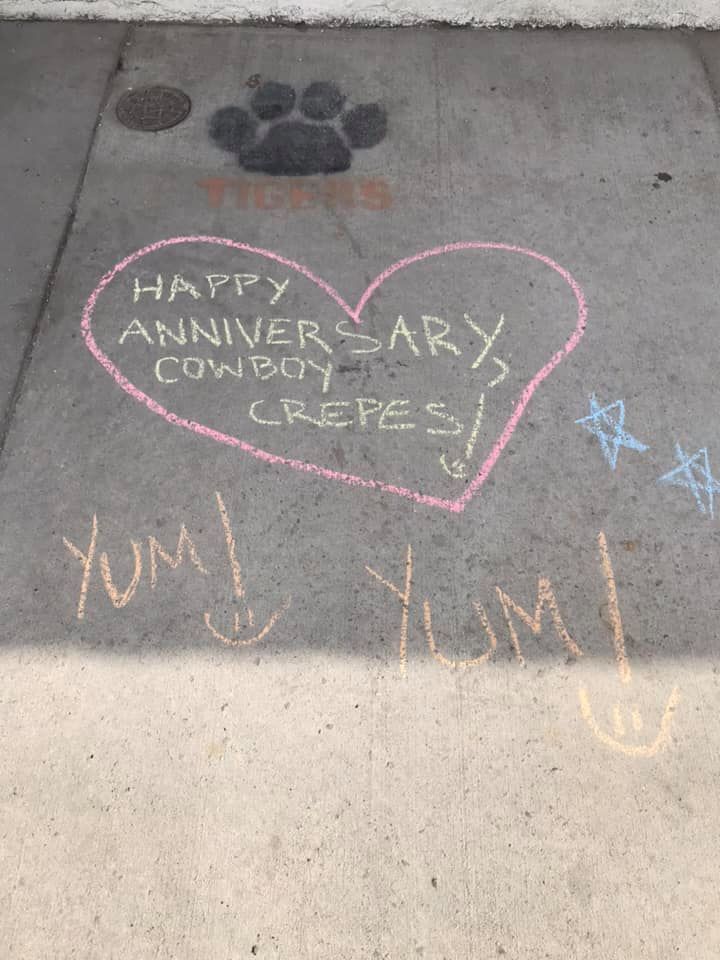 TIGERS
HAPPY
ANNIVERSARY,
COWBOY
CREPES!
YUM! YUM!